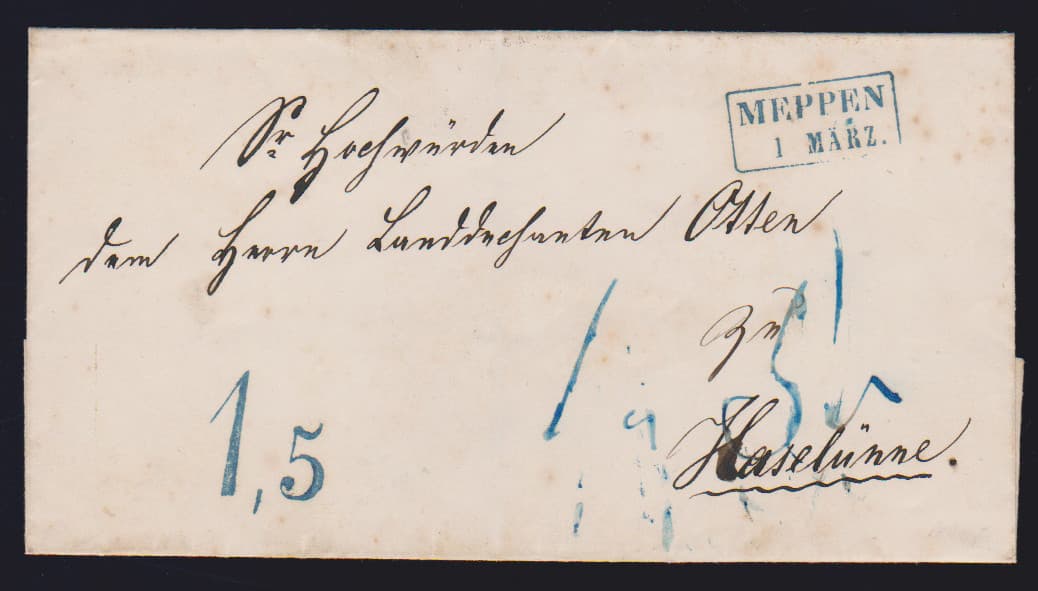 MEPPEN
1 MÄRZ.
Sr. Hochwürden
dem Herrn Landdechanten Otten
zu
Haselünne.
1,5